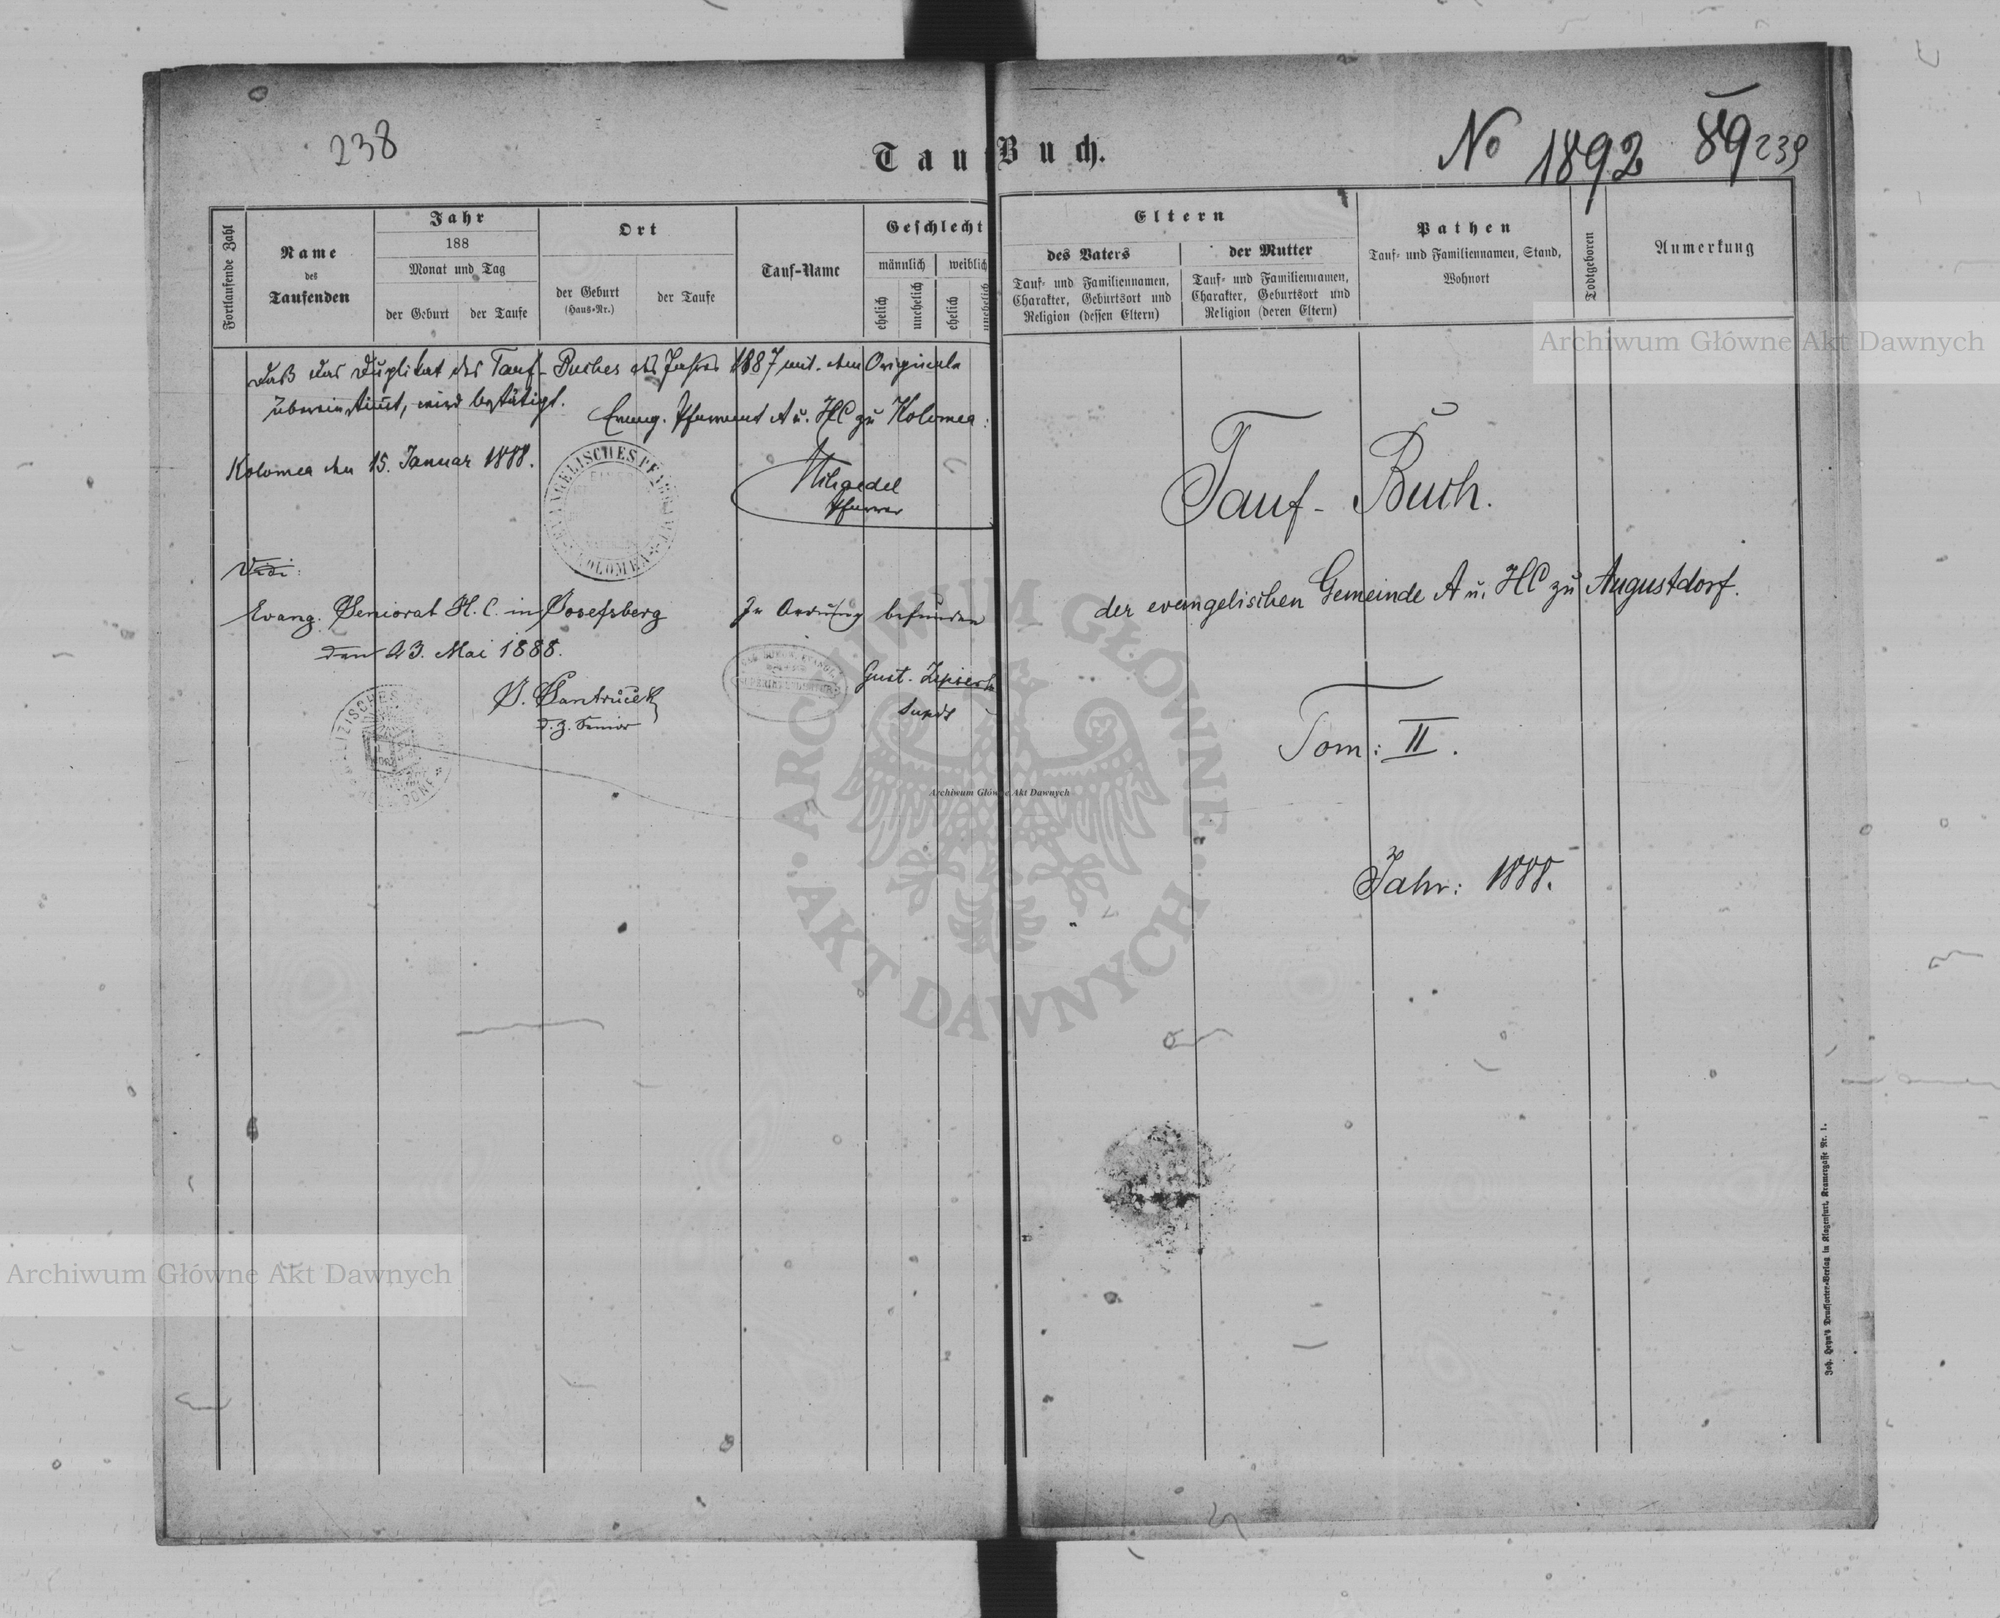 238
Tauf Buch.
No 1892 89 239
Fortlaufende Zahl
Name
des
Taufenden
Jahr
188
Monat und Tag
der Geburt
der Taufe
Ort
der Geburt
(Haus-Nr.)
der Taufe
Tauf-Name
Geschlecht
männlich
weiblich
ehelich
unehelich
ehelich
unehelich
Eltern
des Vaters
Tauf- und Familiennamen,
Charakter, Geburtsort und
Religion (dessen Eltern)
der Mutter
Tauf- und Familiennamen,
Charakter, Geburtsort und
Religion (deren Eltern)
Pathen
Tauf- und Familiennamen, Stand,
Wohnort
Todtgeboren
Anmerkung
Daß das Duplikat des Tauf-Buches des Jahres 1887 mit dem Originale
übereinstimt, wird bestätigt.
Evang. Pfarramt A u. HC zu Kolomea:
Kolomea den 15. Januar 1888.
Pfarrer
EVANGELISCHES PFARRAMT
KOLOMEA
Vidi:
Evang. Seniorat H. C. in Josefsberg
den 23. Mai 1888.
d. z. Senior
In Ordnung befunden
Gust.
Supdt
Tauf-Buch.
der evangelischen Gemeinde A u. HC zu Augustdorf.
Tom: II.
Jahr: 1888.
Joh. Heyn's Drucksorten-Verlag in Klagenfurt, Kramergasse Nr. 1.
Archiwum Główne Akt Dawnych
ARCHIWUM GŁÓWNE
AKT DAWNYCH
Archiwum Główne Akt Dawnych
Archiwum Główne Akt Dawnych